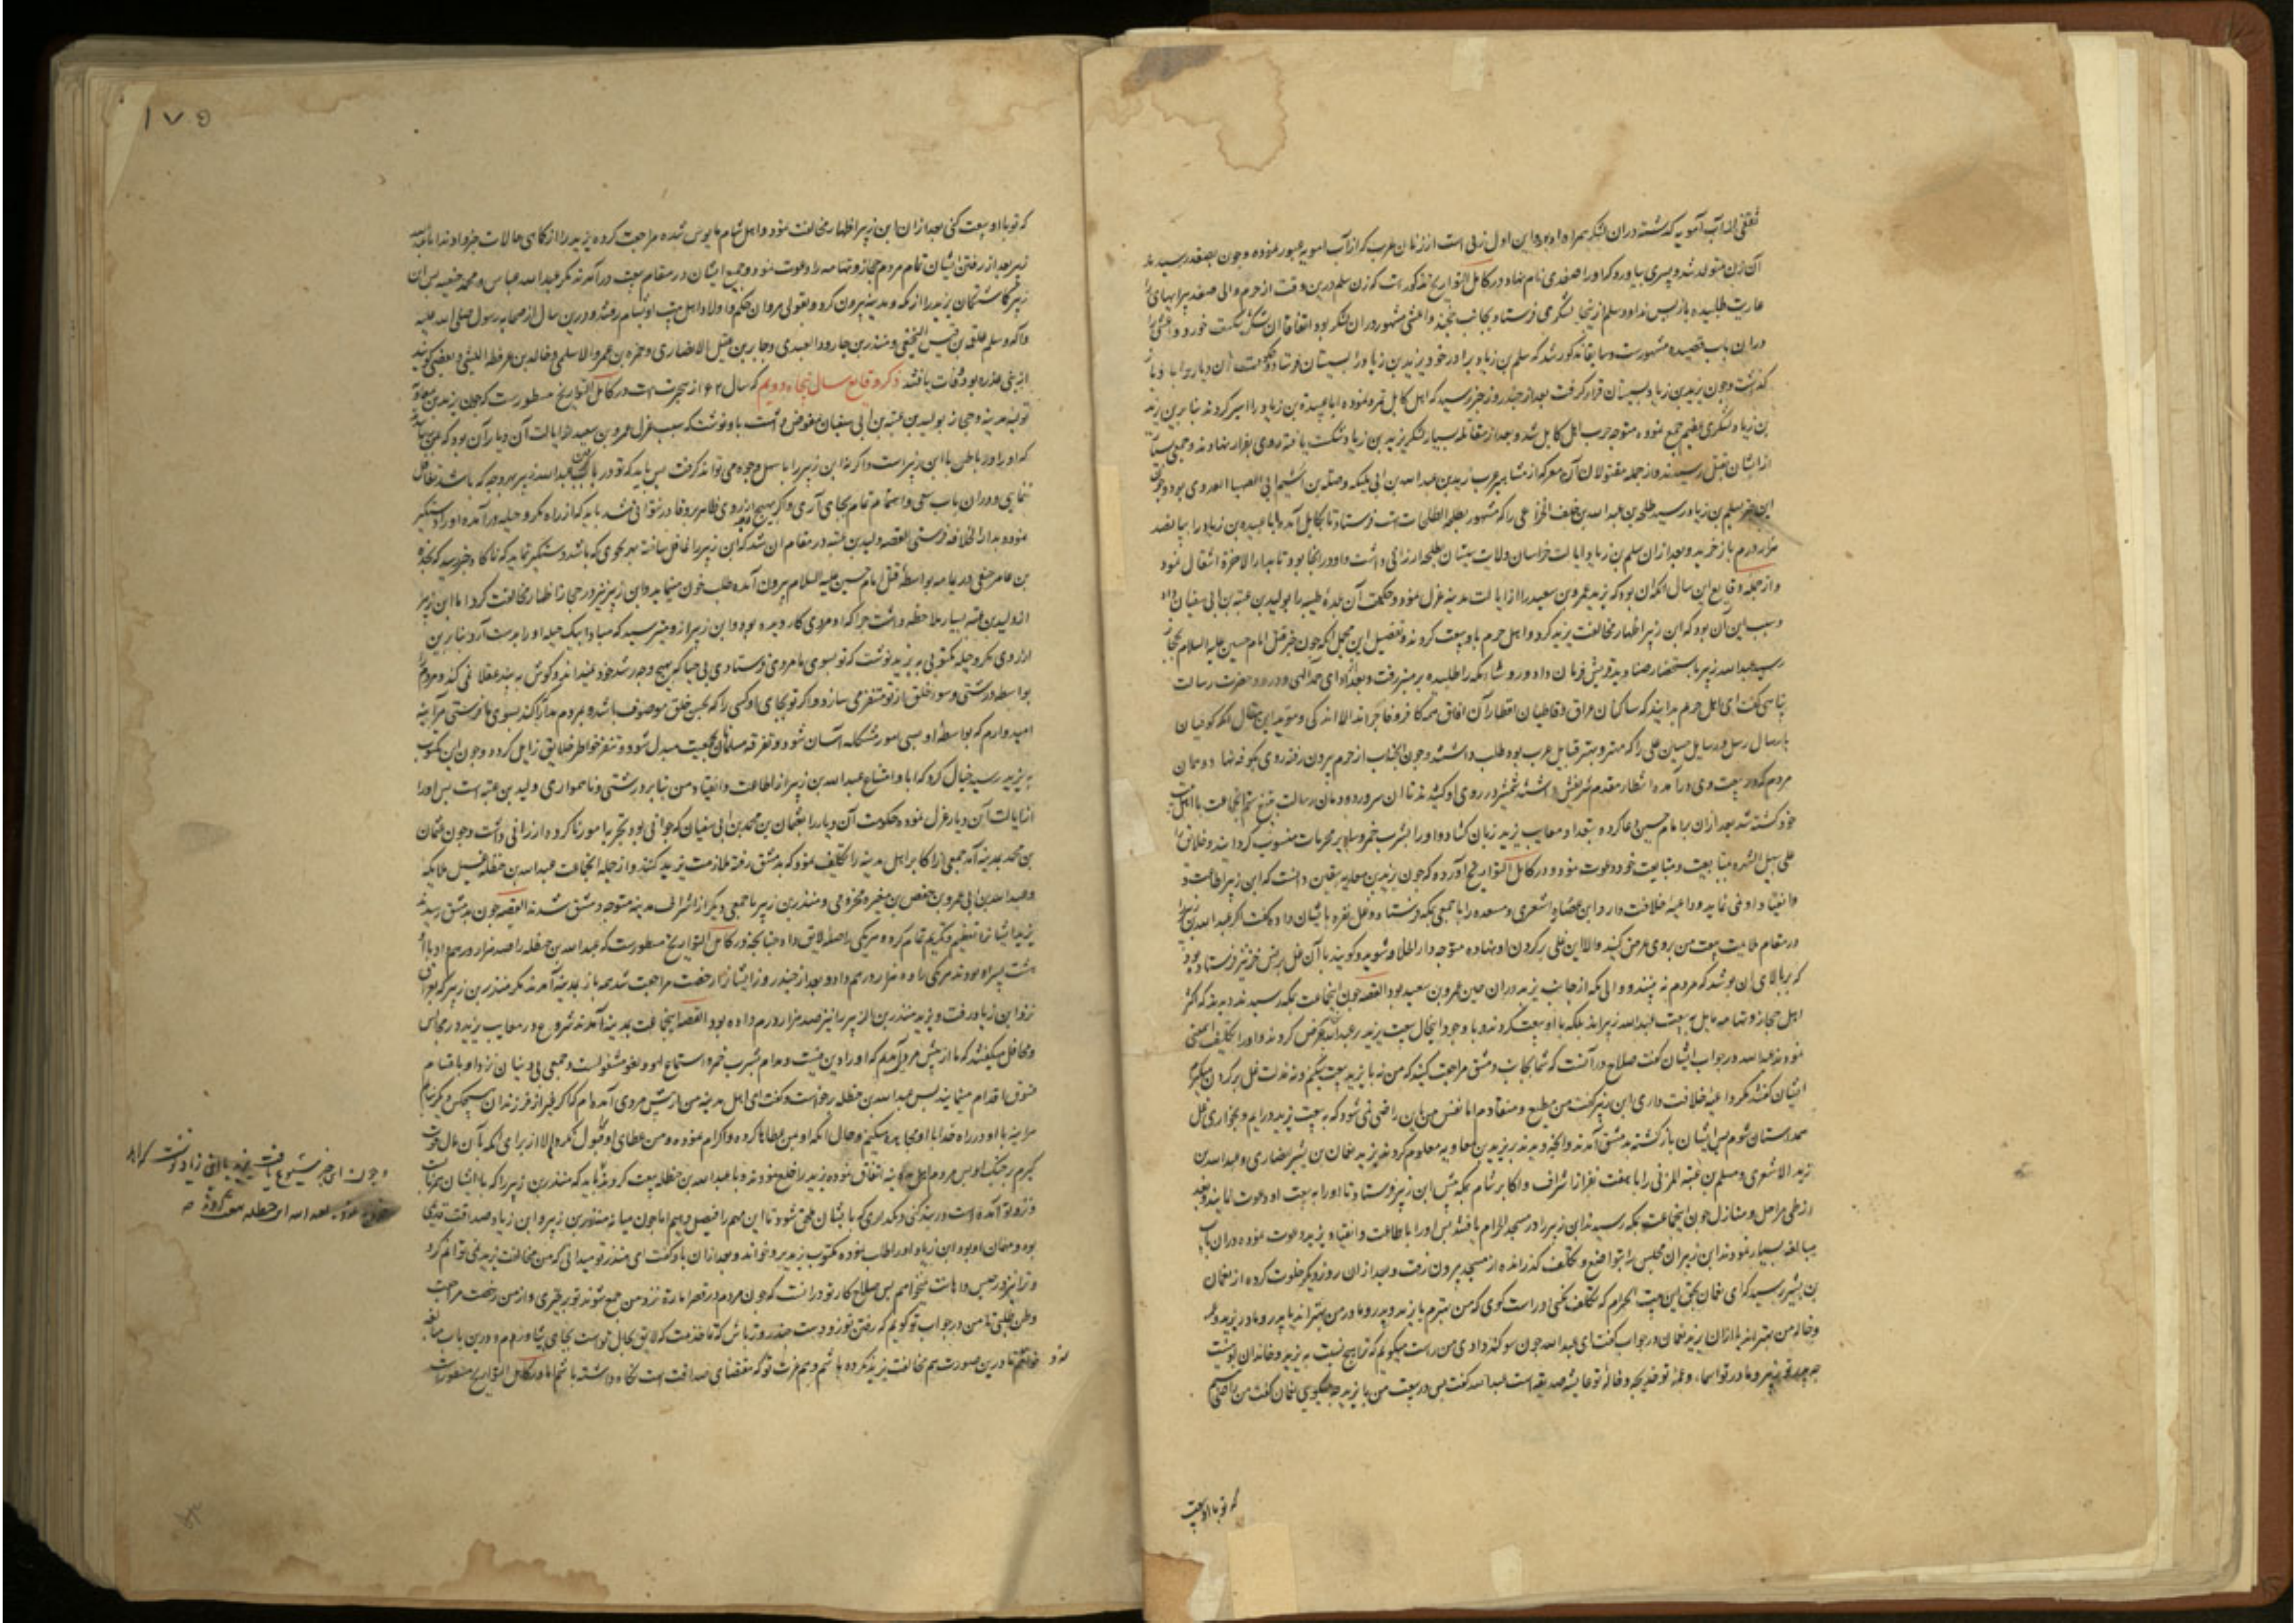 ثقفی از آب آمویه گذشته دران لشکر همراه او بود و این اول زنی است از زنان عرب که از آب امویه عبور نموده و چون بصغد رسیدند
آن زن متولد شد و پسری بیاورد که او را صغدی نام نهاد و در کامل التواریخ مذکورست که زن سلم درین وقت از حرم والی صغد پیرایهای
عاریت طلبیده بازپس نداد و سلم از ینجا لشکر می فرستاد بجانب خجند و اعشی مشهور دران لشکر بود اتفاقا ان لشکر شکست خورد و اعشی
دران باب قصیده مشهورست و سابقا مذکور شد که سلم بن زیاد برادر خود یزید بن زیاد را بسیستان فرستاد و حکومت آن دیار
گذاشت و چون یزید بن زیاد بسیستان قرار گرفت بعد از چند روز خبر رسید که اهل کابل تمرد نموده ابا عبیدة بن زیاد را اسیر کردند بنابرین یزید
بن زیاد لشکری عظیم جمع نموده متوجه حرب اهل کابل شد و بعد از مقاتله بسیار لشکر یزید بن زیاد شکست یافته روی بفرار نهادند و جمعی
از ایشان بقتل رسیدند و از جمله مقتولان آن معرکه از مشاهیر عرب زید بن عبدالله بن ابی ملیکه وصله بن اشیم ابی الصهبا العدوی بود و چون
این خبر بسلم بن زیاد رسید طلحه بن عبدالله بن خلف الخزاعی را که مشهور بطلحة الطلحات است فرستاد تا بکابل آمد و ابا عبیده بن زیاد را بپانصد
هزار درم باز خرید و بعد ازان سلم بن زیاد ایالت خراسان ولایت سیستان بطلحه ارزانی داشت و او در انجا بود تا بدار الاخرة انتقال نمود
و از جمله وقایع این سال انکه ان بود که یزید عمرو بن سعید را از ایالت مدینه عزل نمود و حکومت آن بلده طیبه را بولید بن عتبه بن ابی سفیان داد
و سبب این آن بود که ابن زبیر اظهار مخالفت یزید کرد و اهل حرم با او بیعت کردند و تفصیل این مجمل انکه چون خبر قتل امام حسین علیه السلام بحجاز
رسید عبدالله زبیر باستحضار صنادید قریش فرمان داد و روساء مکه را طلبیده بر منبر رفت و بعد از ادای حمد الهی و درود حضرت رسالت
پناهی گفت ای اهل حرم بدانید که ساکنان عراق و قاطنان اقطار آن افاق همه کافر و فاجر اند الا اندکی و موید این مقال انکه کوفیان
بارسال رسل و رسایل حسین علی را که مهتر و بهتر قبایل عرب بود طلب داشتند و چون انجناب از حرم بیرون رفته روی بکوفه نهاد
مردم کوفه در بیعت وی درآمده انتظار مقدم شریفش داشتند شمشیر در روی او کشیدند تا ان سرور دودمان رسالت بتیغ ستم انجماعت با اهل بیت
خود کشته شد بعد ازان برای امام حسین دعا کرده بتعداد معایب یزید زبان کشاد و او را بشرب خمر و سایر محرمات منسوب گردانید و خلایق را
علی سبیل الشهره بمتابعت و مبایعت خود دعوت نمود و در کامل التواریخ آورده که چون یزید بن معاویه بیقین دانست که ابن زبیر اطاعت و
انقیاد او نمی نماید و داعیه خلافت دارد ابن عضاه اشعری و مسعده را با جمعی بمکه فرستاد و غل نقره بایشان داد و گفت اگر عبدالله بن زبیر
در مقام متابعت بیعت من بروی عرض کنید والا این غلی بر گردن او نهاده متوجه دار الخلافه شوید و گویند با آن غل برنس خز نیز فرستاده بود
که بر بالای ان پوشد که مردم نه بینند و والی مکه از جانب یزید دران حین عمرو بن سعید بود القصه چون انجماعت بمکه رسیدند دیدند که اکثر
اهل حجاز و تهامه مایل به بیعت عبدالله زبیر اند بلکه با او بیعت کردند و با وجود انحال بیعت یزید بر عبدالله عرض کردند و او را تکلیف
نمودند عبدالله در جواب ایشان گفت صلاح در آنست که شما بجانب دمشق مراجعت کنید که من نه با یزید بیعت میکنم و نه مذلت غل بر گردن میگیرم
ایشان گفتند مگر داعیه خلافت داری ابن زبیر گفت من مطیع و منقادم اما نفس من باین راضی نمی شود که به بیعت یزید درایم و بخواری غل
همداستان شوم پس ایشان بازگشته بدمشق آمدند و انچه دیدند بر یزید بن معاویه معلوم کردند یزید نعمان بن بشیر انصاری و عبدالله بن
زید الاشعری و مسلم بن عقبه المزنی را با هفت نفر از اشراف و اکابر شام بمکه پیش ابن زبیر فرستاد تا او را به بیعت او دعوت نمایند و بعد
از طی مراحل و منازل چون انجماعت بمکه رسیدند ابن زبیر را در مسجد الحرام یافتند پس او را باطاعت و انقیاد یزید دعوت نموده دران باب
مبالغه بسیار نمودند ابن زبیر ان مجلس را بتواضع و تکلف گذرانده از مسجد بیرون رفت و بعد ازان روز دیگر خلوت کرده از نعمان
بن بشیر پرسید که ای نعمان بحق این بیت الحرام که تکلف نکنی و راست گوی که من بهترم یا یزید و پدر و مادر من بهتر اند یا پدر و مادر یزید و عمه
و خاله من بهتر اند یا ازان یزید نعمان در جواب گفت ای عبدالله چون سوگند دادی من راست میگویم که ترا هیچ نسبت به یزید و خاندان او نیست
چه پدر تو زبیر و مادر تو اسماء و عمه تو خدیجه و خاله تو عایشه صدیقه است عبدالله گفت پس در بیعت من با یزید چه میگویی نعمان گفت من راضی نیستم
که تو با او بیعت
۱۷۵
که تو با او بیعت کنی بعد ازان ابن زبیر اظهار مخالفت نمود و اهل شام مایوس شده مراجعت کرده یزید را از کماهی حالات خبر دادند اما عبدالله
زبیر بعد از رفتن ایشان تمام مردم حجاز و تهامه را دعوت نمود و جمیع ایشان در مقام بیعت درآمدند مگر عبدالله عباس و محمد حنفیه پس ابن
زبیر گماشتگان یزید را از مکه و مدینه بیرون کرد و بقولی مروان حکم و اولاد و اهل بیت او بشام رفتند و درین سال از صحابه رسول صلی الله علیه
واله و سلم علقمه بن قیس النخعی و منذر بن جارود العبدی و جابر بن عتیک الانصاری و حمزه بن عمرو الاسلمی و خالد بن عرفطه اللیثی و بعضی گویند
از بنی عذره بود وفات یافتند ذکر وقایع سال پنجاه و دویم که سال ۶۲ از هجرتست در کامل التواریخ مسطورست که چون یزید بن معاویه
تولیت مدینه و حجاز بولید بن عتبه بن ابی سفیان مفوض داشت باو نوشت که سبب عزل عمرو بن سعید از ایالت آن دیار آن بود که
که او را در باطن با ابن زبیر است و اگر نه ابن زبیر را باسهل وجوه می توانند گرفت پس باید که تو در باب گرفتن عبدالله زبیر بهر وجه که باشد تغافل
ننمایی و دران باب سعی و اهتمام تمام بجای آری و اگر بهیچ وجه از روی ظاهر برو قادر نتوانی شد باید که از راه مکر و حیله درآمده او را دستگیر
نموده بدار الخلافه فرستی القصه ولید بن عتبه در مقام ان شد که ابن زبیر را غافل ساخته بهر نحوی که باشد دستگیر نماید که ناگاه خبر رسید که نجدة
بن عامر حنفی در یمامه بواسطه قتل امام حسین علیه السلام بیرون آمده طلب خون مینماید و ابن زبیر نیز در حجاز اظهار مخالفت کرد اما ابن زبیر
از ولید بن عتبه بسیار ملاحظه داشت چرا که او مردی کاردیده بود و ابن زبیر ازو میترسید که مبادا بیک حیله او را بدست آرد بنابرین
از روی مکر و حیله مکتوبی به یزید نوشت که تو بسوی ما مردی فرستادی بی حیا که بهیچ وجه رشد خود نمیداند و گوش به پند عقلا نمی کند و مردم را
بواسطه درشتی و سوء خلق از تو متنفر می سازد و اگر تو بجای او کسی را که بحسن خلق موصوف باشد و بمردم مدارا کند بسوی ما فرستی هر آینه
امیدوارم که بواسطه او بسی امور مشکله آسان شود و تفرقه مسلمانان بجمعیت مبدل شود و تنفر خواطر خلایق زایل گردد و چون این مکتوب
به یزید رسید خیال کرد که ابا و امتناع عبدالله بن زبیر از اطاعت و انقیاد من بنابر درشتی و ناهمواری ولید بن عتبه است پس او را
از ایالت آن دیار عزل نموده حکومت آن دیار را بعثمان بن محمد بن ابی سفیان که جوانی بود و تجربه امور ناکرده ارزانی داشت و چون عثمان
بن محمد بمدینه آمد جمعی را از اکابر اهل مدینه را تکلیف نمود که بدمشق رفته ملازمت یزید کنند و از جمله انجماعت عبدالله بن حنظله غسیل ملایکه
و عبدالله بن ابی عمرو بن حفص بن مغیره مخزومی و منذر بن زبیر با جمعی دیگر از اشراف مدینه متوجه دمشق شدند القصه چون بدمشق رسیدند
یزید ایشانرا تعظیم و تکریم تمام کرده هر یکی را صله لایق داد چنانچه در کامل التواریخ مسطورست که عبدالله بن حنظله را صد هزار درهم داد و با او
هشت پسر او بودند هر یکی را ده هزار درهم داد و بعد از چند روز ایشانرا رخصت مراجعت شد همه باز بمدینه آمدند مگر منذر بن زبیر که
نزد ابن زیاد رفت و یزید منذر بن الزبیر را نیز صد هزار درم داده بود القصه انجماعت بمدینه آمدند شروع در معایب یزید در مجالس
و محافل میگفتند که ما از پیش مردی آمدیم که او را دین نیست و مدام بشرب خمر و استماع لهو و لغو مشغولست و جمعی بی دینان نزد او باقسام
فسوق اقدام مینمایند پس عبدالله بن حنظله برخاست و گفت ای اهل مدینه من از پیش مردی آمده ام که اگر غیر از فرزندان من هیچکس دیگر نیابم
هر آینه با او در راه خدا مجاهده میکنم و حال آنکه او بمن عطاها کرده و اکرام نموده و من عطای او قبول نکردم الا از برای آنکه بآن مال قوت
گیرم بر جنگ او پس مردم اهل مدینه اتفاق نموده یزید را خلع نمودند و با عبدالله بن حنظله بیعت کردند باید که منذر بن زبیر را که با ایشان همراهست
و نزد تو آمده است در بند کنی و نگذاری که بایشان ملحق شود تا این مهم را فیصل دهیم اما چون میانه منذر بن زبیر و ابن زیاد صداقت قدیمی
بود و مهمان او بود ابن زیاد او را طلب نموده مکتوب یزید برو خواند و بعد ازان باو گفت ای منذر تو میدانی که من مخالفت یزید نمی توانم کرد
و ترا نیز در حبس و اهانت نمیخواهم پس صلاح کار تو درانست که چون مردم در قصر امارة نزد من جمع شوند تو برخیزی و از من رخصت مراجعت
وطن طلبی تا من در جواب تو گویم که رفتن تو زودست چند روز باش که تا خدمت که لایق بحال توست بجای تو بیاورم و درین باب مبالغه
خواهم نمود تا درین صورت هم مخالفت یزید نکرده باشم و هم عزت تو که مقتضای صداقت است نگاه داشته باشم اما در کامل التواریخ مسطورست
و چون این خبر شیوع یافت یزید بابن زیاد نوشت که اهل
مدینه خلع نموده بعبدالله ابن حنظله بیعت کردند